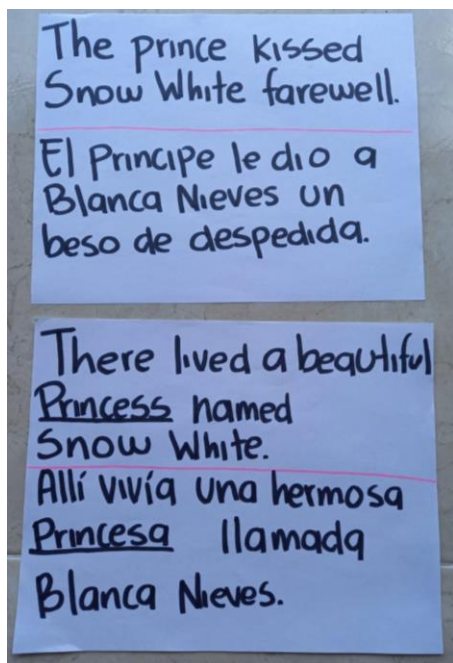 The prince kissed
Snow White farewell.
El Principe le dio a
Blanca Nieves un
beso de despedida.
There lived a beautiful
Princess named
Snow White.
Allí vivía una hermosa
Princesa llamada
Blanca Nieves.